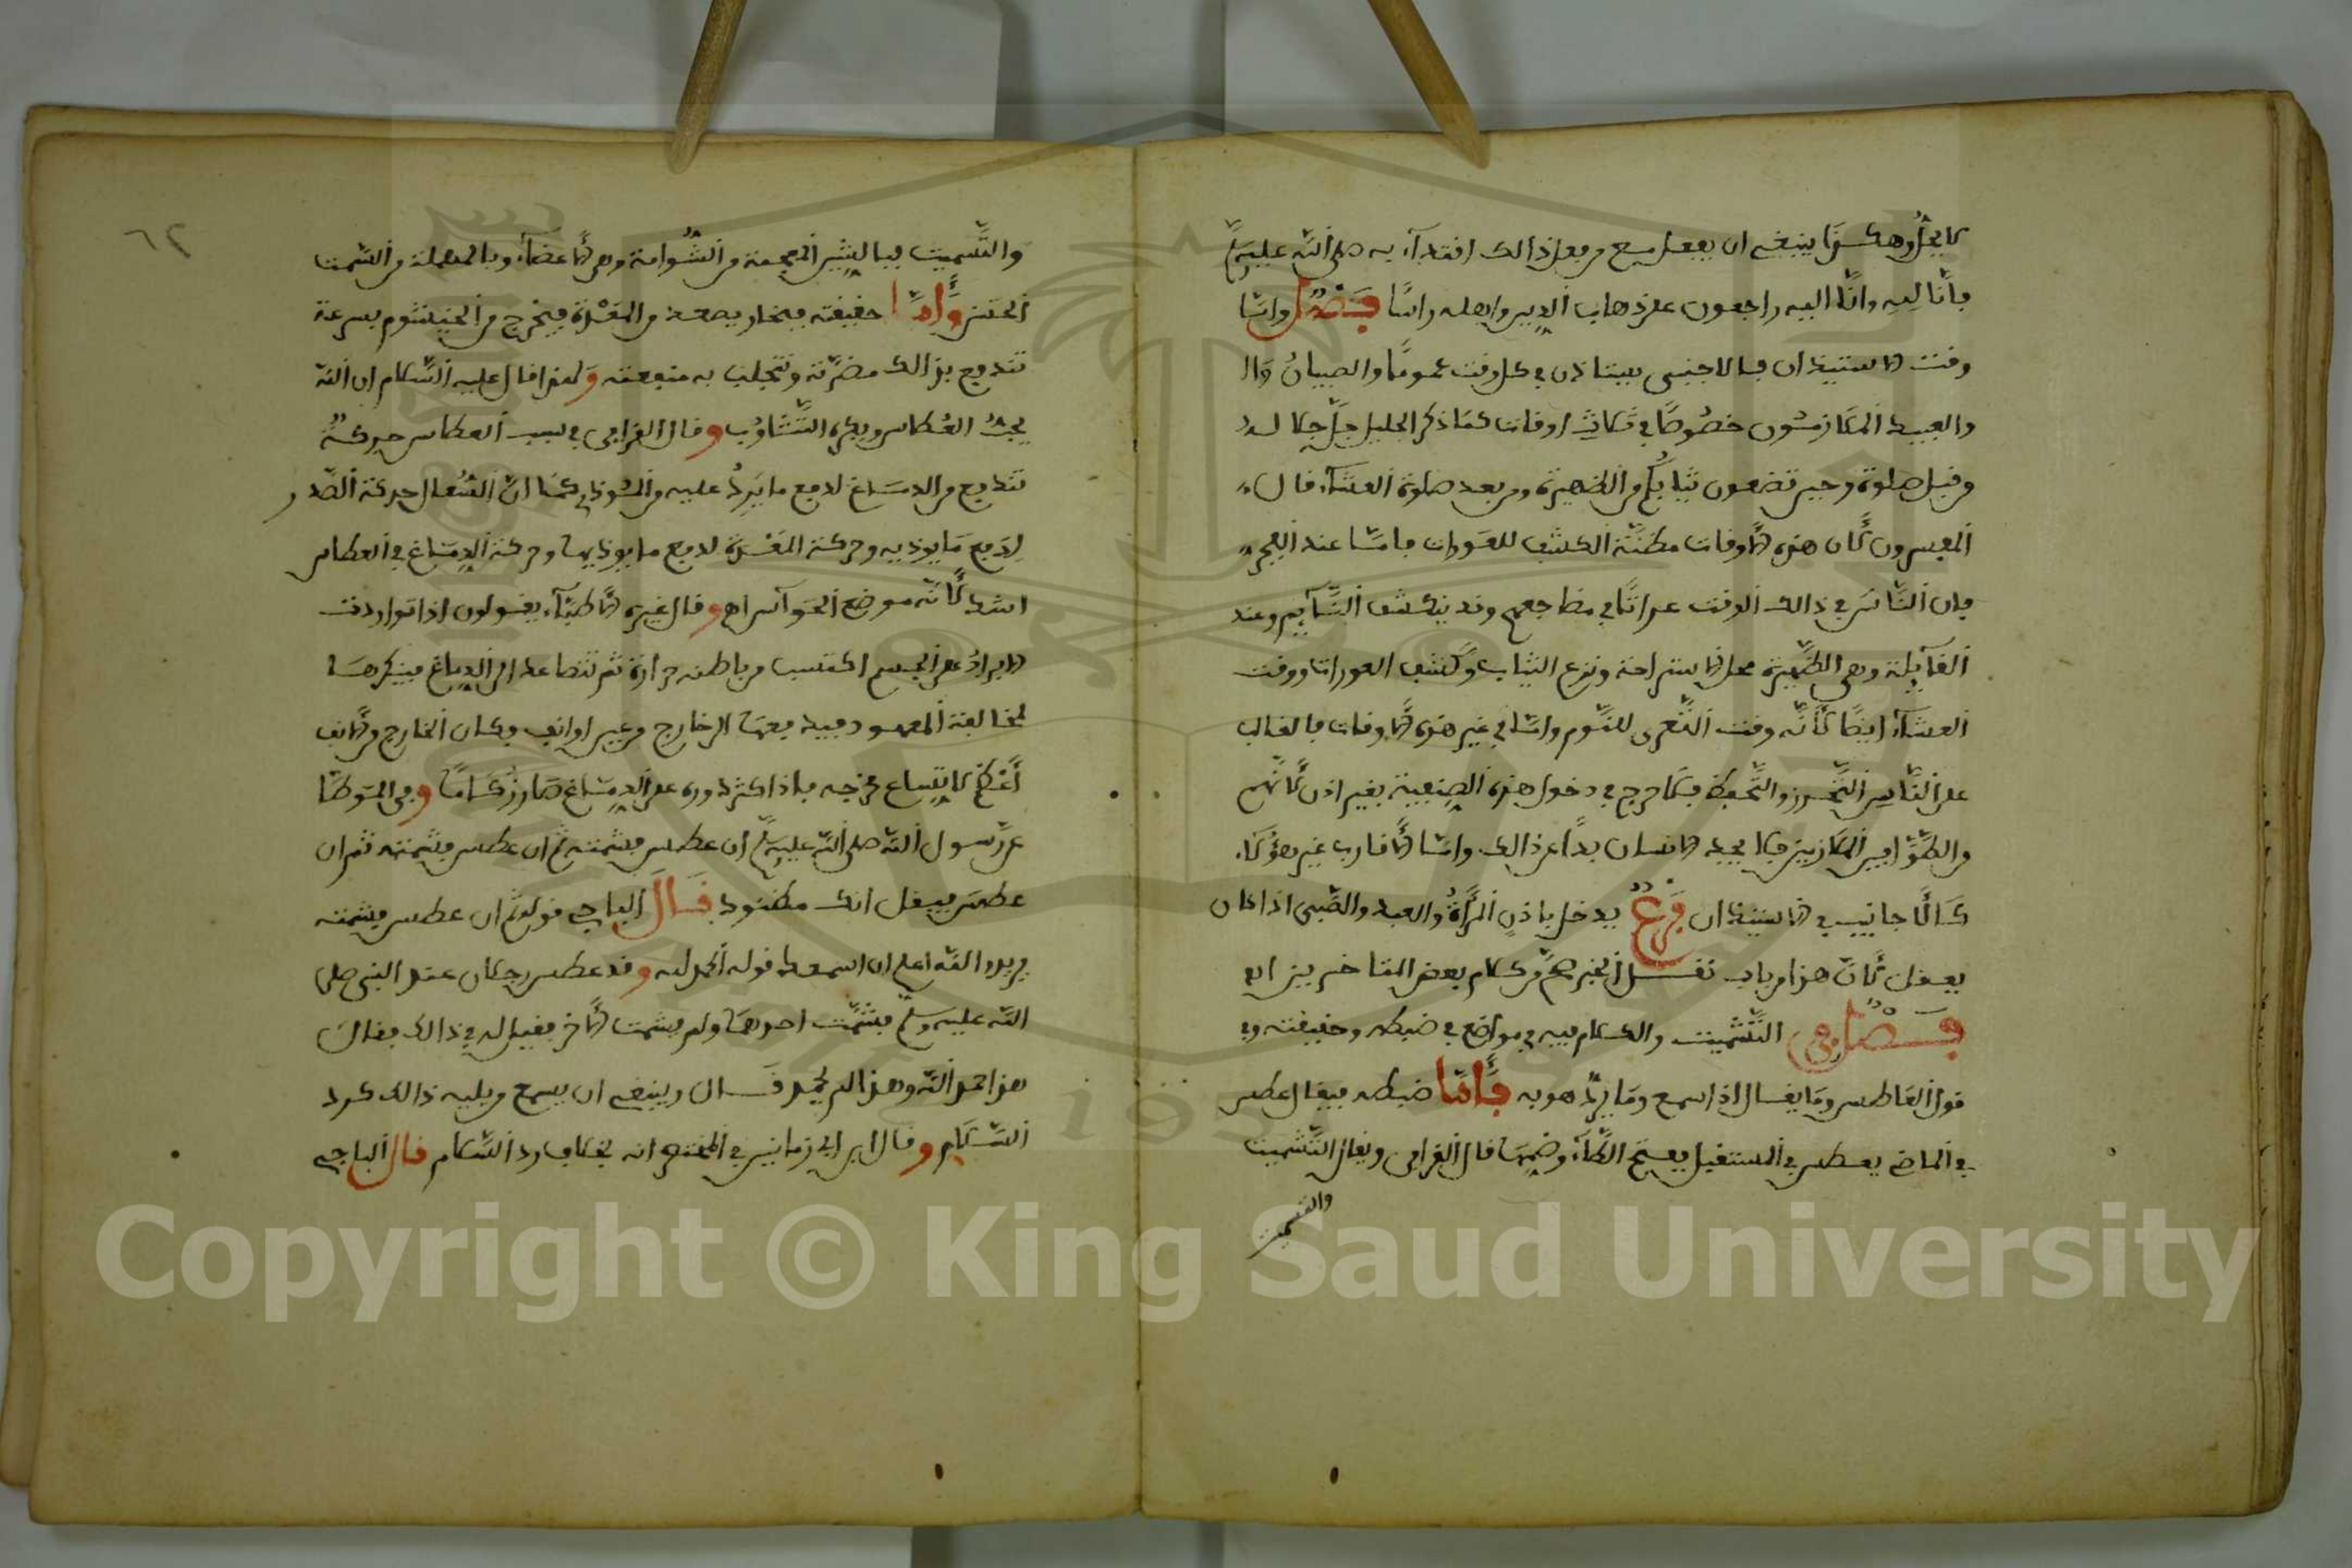 لا يجزؤ وهكذا ينبغي ان يفعل مع من فعل ذالك اقتداء به صلى الله عليه وسلم
فانا لله وانا اليه راجعون على ذهاب الدين واهله راسا فصل واما
وقت الاستيذان فالاجنبي يستاذن في كل وقت عموما والصبيان
والعبيد الملازمون خصوصا في ثلاث اوقات كما ذكر الجليل جل جلاله
من قبل صلوة وحين تضعون ثيابكم من الظهيرة ومن بعد صلوة العشاء قال
المفسرون لان هذه الاوقات مظنة الكشف للعورات فاما عند الفجر
فان الناس في ذالك الوقت عراتا في مضاجعهم وقد ينكشف النايم وعند
القايلة وهي الظهيرة محل الاستراحة ونزع الثياب وكشف العورات ووقت
العشاء ايضا لانه وقت التعرى للنوم واما في غير هذه الاوقات فالغالب
على الناس التحرز والتحفظ فلا حرج في دخول هذه الصنفية بغير اذن لانهم
من الطوافين الملازمين فلا يجد الانسان بدا عن ذالك واما الاقارب غير هؤلاء
كالاجانب في الاستيذان فرع يدخل باذن المرأة والعبد والصبى اذا كان
يعقل لان هذا من باب نقل الخبر هى من كلام بعض المتاخرين اه
فصل في التشميت والكلام فيه في مواضع في ضبطه وحقيقته وفي
قول العاطس وما يقال اذا سمع وما يرد هو به فاما ضبطه فيقال عطس
في الماضي يعطس في المستقبل بفتح الطاء وضمها قال القرافي ويقال التشميت
والتسميت
٦٢
والتسميت فبالشين المعجمة من الشوامة وهي الاعضاء وبالمهملة من السمت
الحسن واما حقيقته فبخار يصعد من المعدة فيخرج من الخيشوم بسرعة
تندفع بذالك مضرته وتجلب به منفعته ولهذا قال عليه السلام ان الله
يحب العطاس ويكره التثاؤب وقال القرافي في سبب العطاس حركة
تندفع من الدماغ لدفع ما يرد عليه من الموذي كما ان السعال حركة الصدر
لدفع ما يوذيه وحركة المعدة لدفع ما يوذيها وحركة الدماغ في العطاس
اشد لانه موضع الحواس اه وقال غيره الاطباء يقولون اذا تواردت
الابراد على الجسم اكتسب من باطنه حرارة ثم تتصاعد الى الدماغ فينكرها
لمخالفة المعهود فيه فيدفعها الى خارج من عين او انف فكان الخارج من الانف
أعظم لاتساع مخرجه فاذا كثر ذوره على الدماغ صار زكاما وفي الموطا
عن رسول الله صلى الله عليه وسلم ان عطس فشمته ثم ان عطس فشمته ثم ان
عطس فيقل انك مضنوك قال الباجي قوله ثم ان عطس فشمته
يريد والله اعلم ان اسمعك قوله الحمد لله وقد عطس رجلان عند النبي صلى
الله عليه وسلم فشمت احدهما ولم يشمت الاخر فقيل له في ذالك فقال
هذا حمد الله وهذا لم يحمد قال وينبغي ان يسمع من يليه ذالك كرد
السلام وقال ابن ابي زمانين في المختصر انه بخلاف رد السلام قال الباجي
Copyright © King Saud University